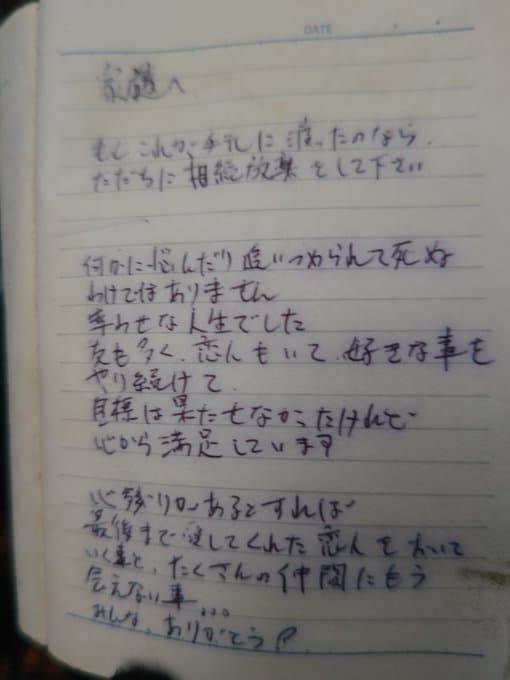 DATE
家族へ
もしこれが手元に渡ったのなら、
ただちに相続放棄をして下さい
何かに悩んだり追いつめられて死ぬ
わけではありません
幸わせな人生でした
友も多く、恋人もいて、好きな事を
やり続けて、
目標は果たせなかったけれど
心から満足しています
心残りがあるとすれば
最後まで愛してくれた恋人をおいて
いく事と、たくさんの仲間にもう
会えない事...
みんな、ありがとう